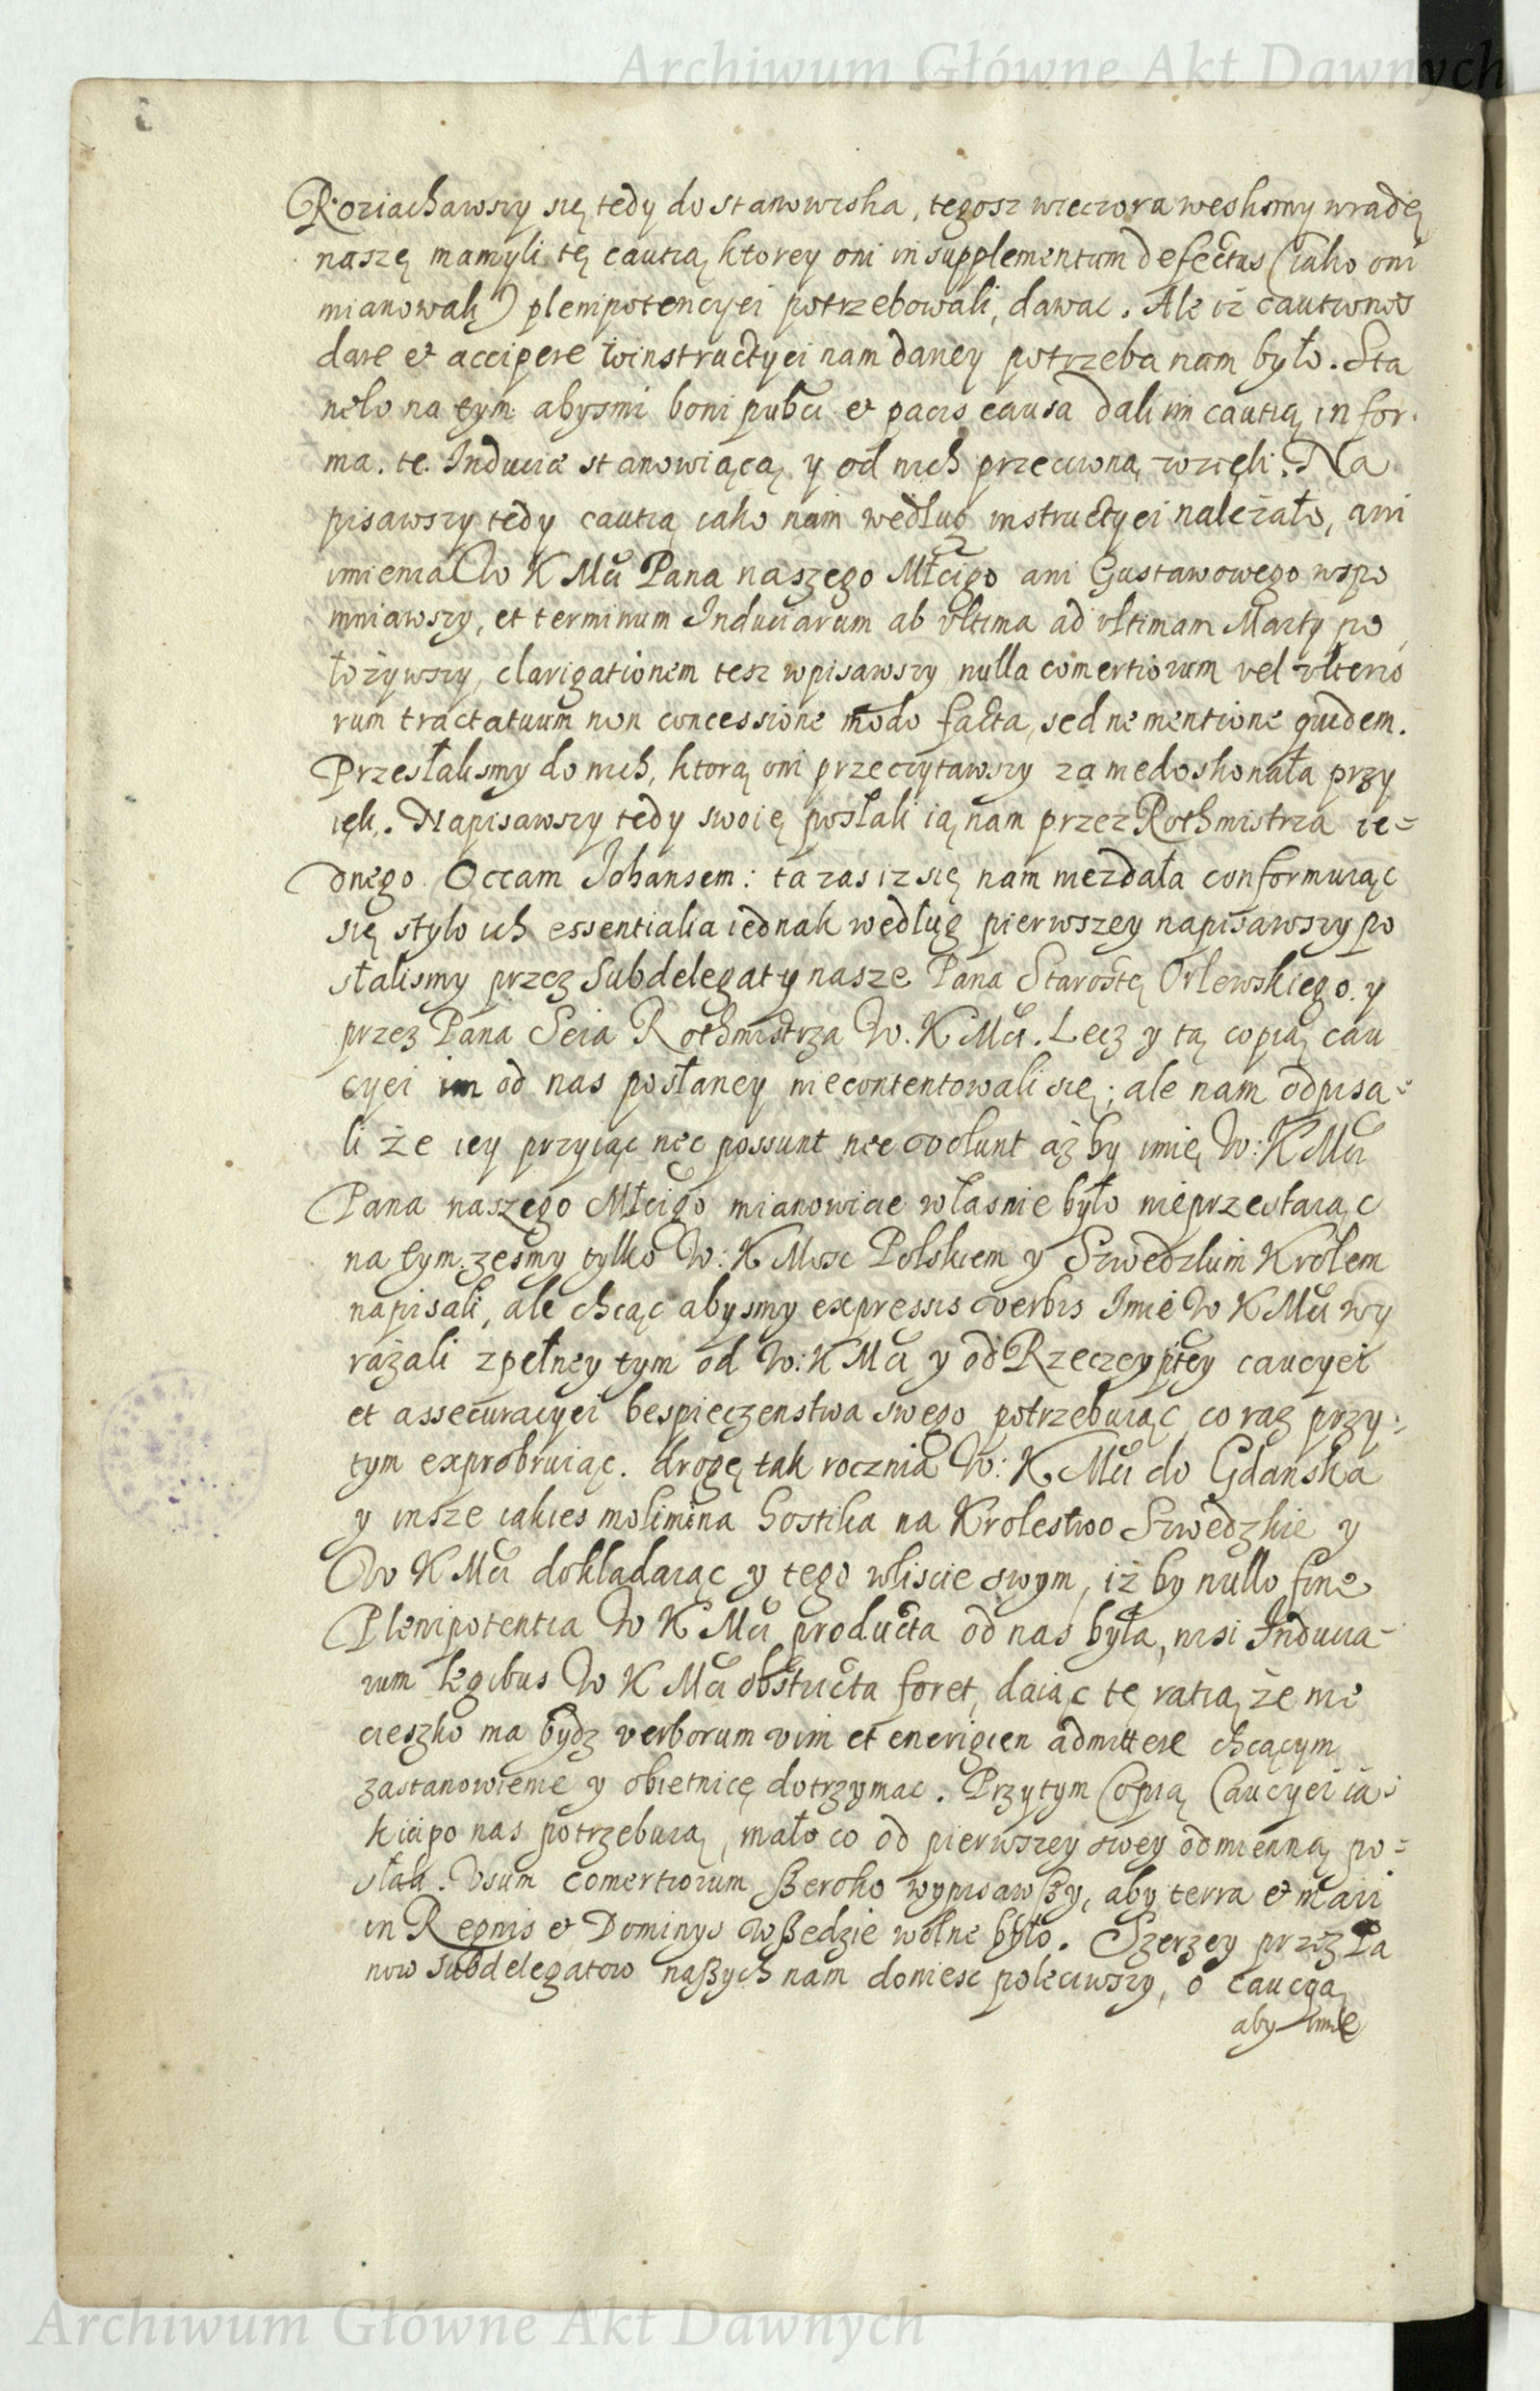 Archiwum Główne Akt Dawnych
Roziachawszy się tedy do stanowiska, tegosz wieczora weslismy wradę
naszę mamyli tę cautią ktorey oni in supplementum defectus (iako oni
mianowali) plenipotencyei potrzebowali, dawac. Ale iż cautiones
dare et accipere winstructyei nam daney potrzeba nam było. Sta
neło na tym abysmi boni publi et pacis causa dali im cautią in for-
ma. te. Inducie stanowiącą y od nich przeciwną wzięli. Na
pisawszy tedy cautią iako nam według instructyei należało, ani
imienia W K Mći Pana naszego Młcigo ani Gustawowego wspo
mniawszy, et terminum Induciarum ab vltima ad vltimam Marty po
łożywszy, clarigationem tesz wpisawszy nulla comertiorum vel vlterio
rum tractatuum non concessione modo facta, sed ne mentione quidem.
Przesłalismy do nich, ktorą oni przeczytawszy za niedoskonała przy
ięli. Napisawszy tedy swoię posłali ią nam przez Rothmistrza ie=
dnego Occam Johansem: ta zas iz się nam niezdała conformuiąc
się stylo ich essentialia iednak według pierwszey napisawszy po
słalismy przez Subdelegaty nasze Pana Starostę Orlewskiego. y
przez Pana Seia Rothmistrza W. K Mći. Lecz y tą copią cau
cyei im od nas posłaney niecontentowali się; ale nam odpisa=
li że iey przyiąc nec possunt nec volunt aż by imię W: K Mći
Pana naszego Młcigo mianowicie własnie było nieprzestaiąc
na tym. zesmy tylko W: K Mosc Polskiem y Szwedzkim Krolem
napisali, ale chcąc abysmy expressis verbis Imie W K Mći wy
rażali zpełney tym od W: K Mći y od Rzeczeyptey caucyei
et assecuracyei bespieczenstwa swego potrzebuiąc co raz przy-
tym exprobruiąc. drogę tak rocznią W: K Mći do Gdanska
y insze iakies molimina hostilia na Krolestwo Szwedzkie y
W K Mći dokładaiąc y tego wliscie swym, iż by nullo fine
Plenipotentia W K Mći producta od nas była, nisi Inducia-
rum legibus W K Mći obstricta foret, daiąc tę ratią że nie
cieszko ma bydz verborum vim et energien admittere chcącym
zastanowienie y obietnicę dotrzymac. Przytym Copią Caucyei ia-
kiei po nas potrzebuią, mało co od pierwszey swey odmienną po=
słali. Vsum comertiorum szeroko wypisawszy, aby terra et mari
in Regnis et Dominys wszedzie wolne było. Szerzey przez Pa
now Subdelegatow naszych nam doniesc poleciwszy, o caucyą
aby imie
Archiwum Główne Akt Dawnych